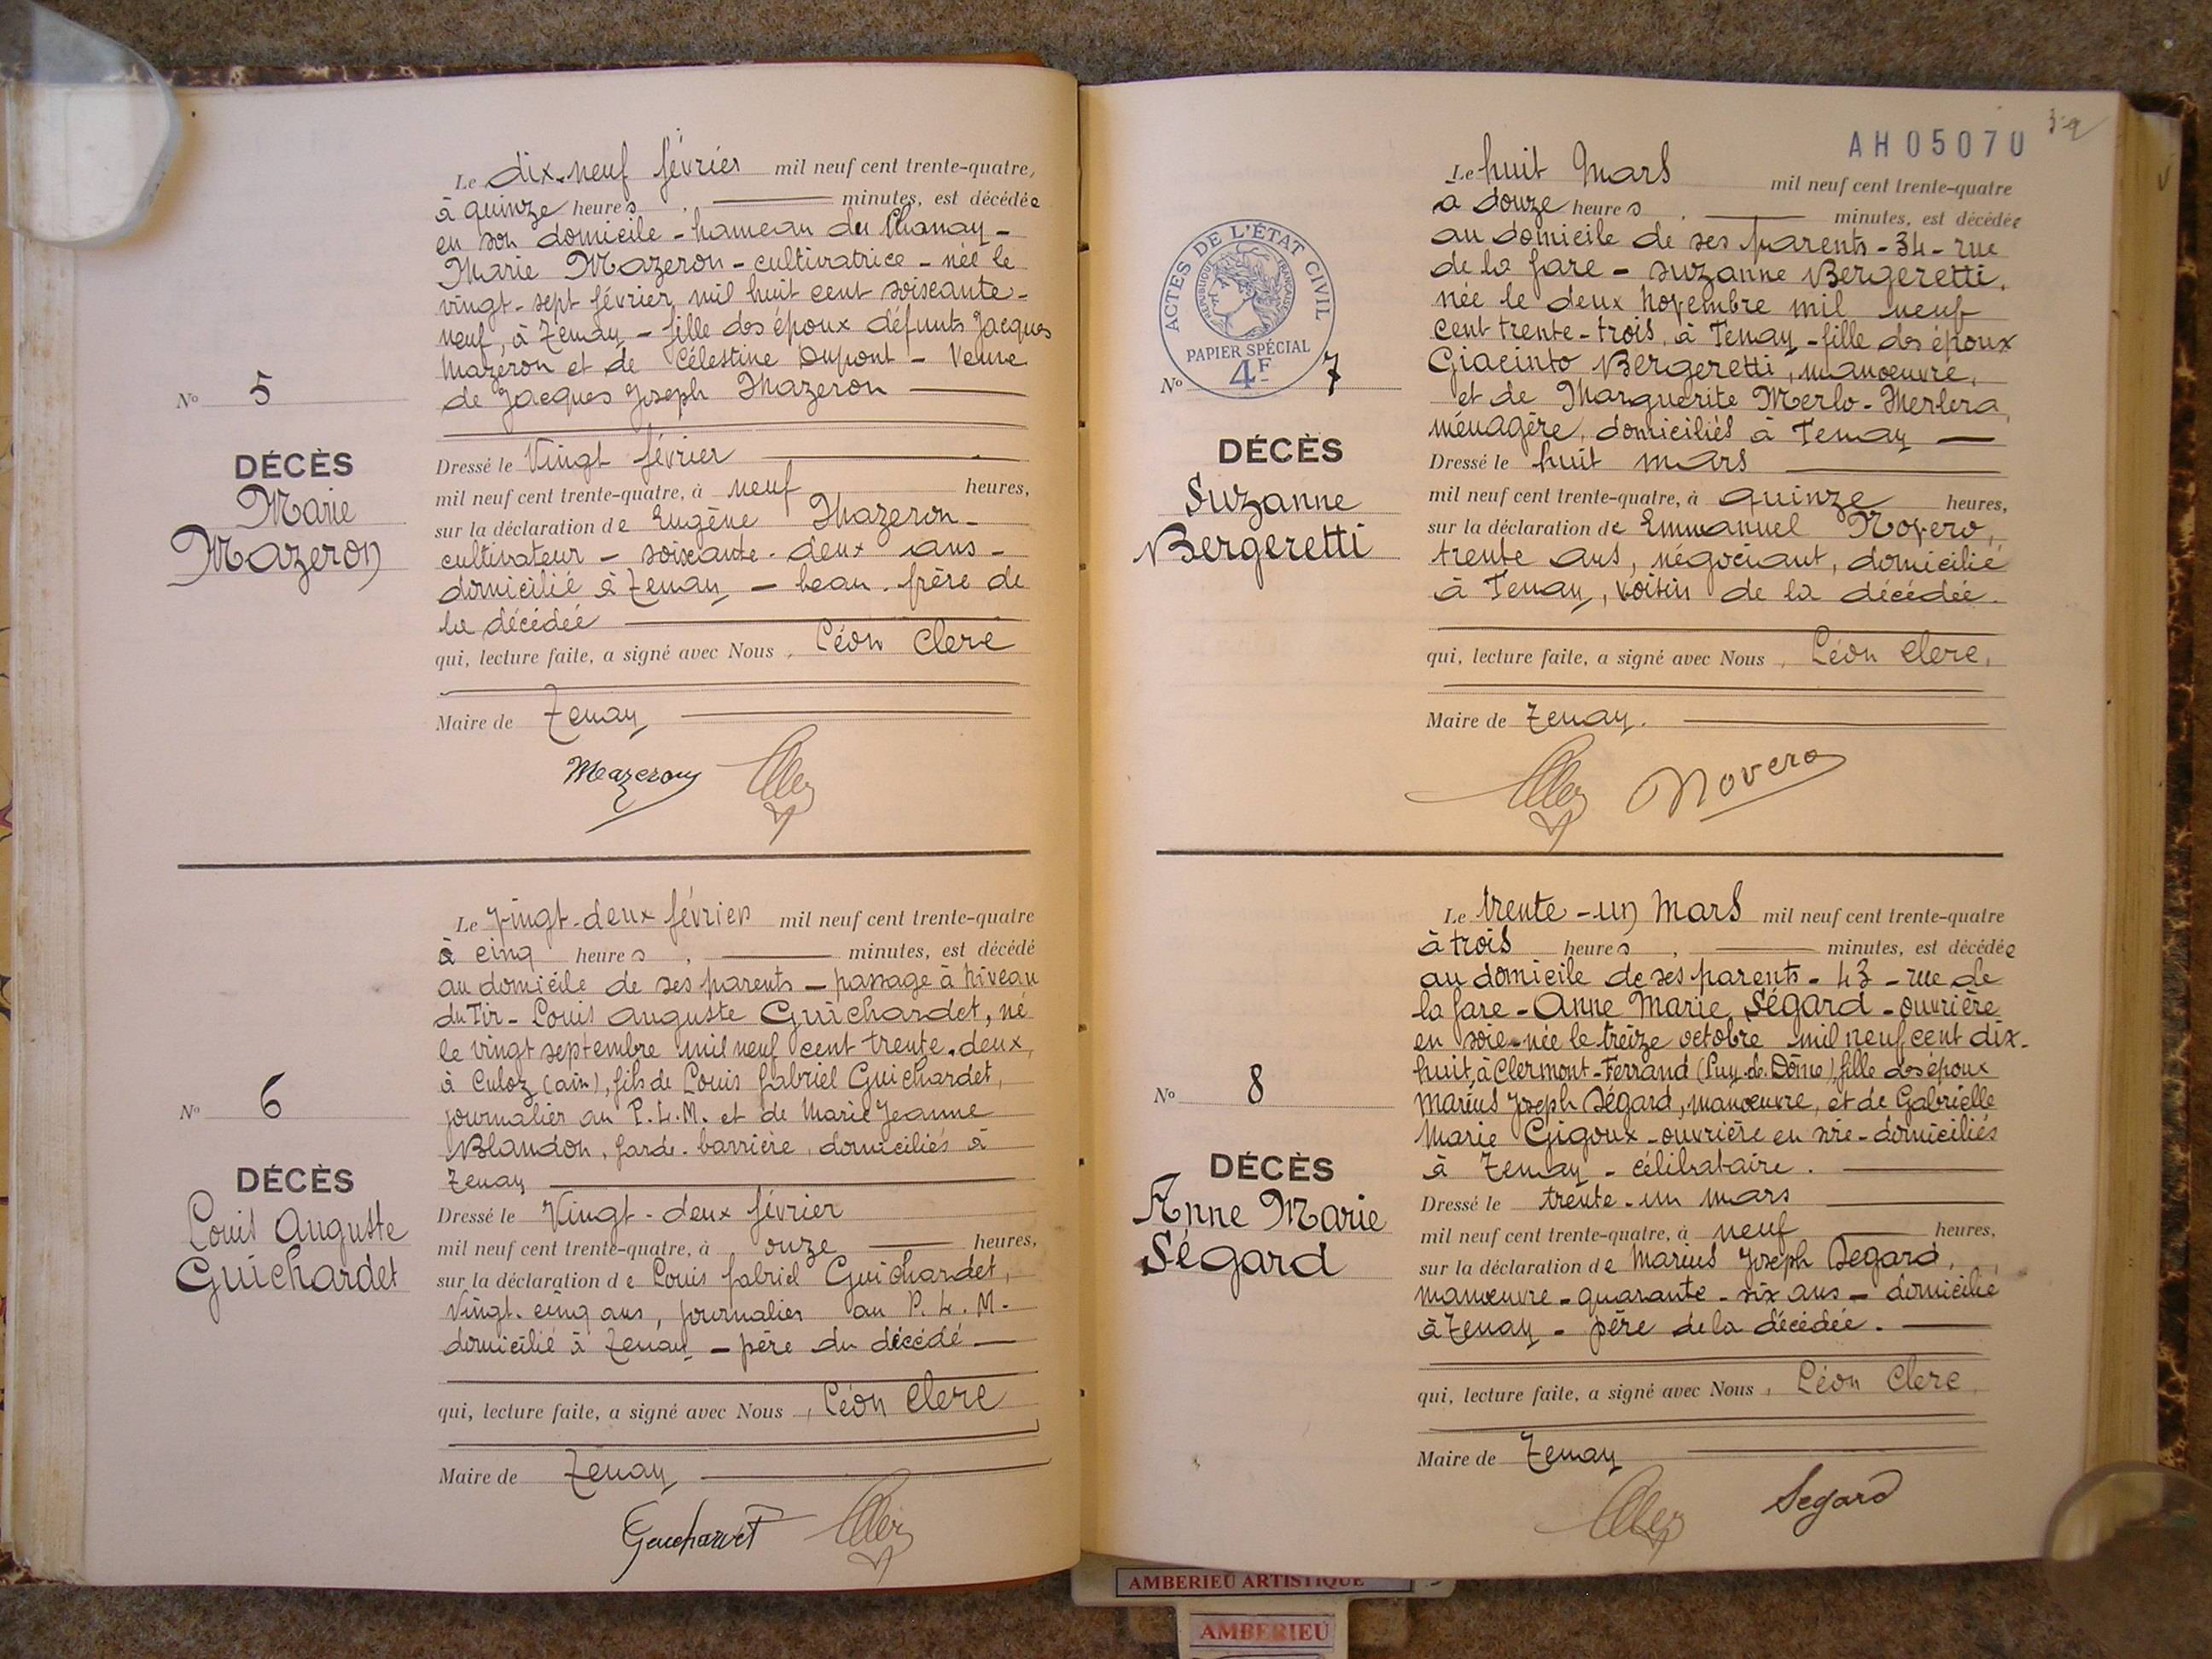 Le dix-neuf février mil neuf cent trente-quatre,
à quinze heures, minutes, est décédée
en son domicile - hameau du Chanay -
Marie Mazeron - cultivatrice - née le
vingt-sept février mil huit cent soixante-
neuf, à Tenay - fille des époux défunts Jacques
Mazeron et de Célestine Dupont - Veuve
de Jacques Joseph Mazeron
No 5
DÉCÈS
Marie
Mazeron
Dressé le Vingt février
mil neuf cent trente-quatre, à neuf heures,
sur la déclaration de Eugène Mazeron -
cultivateur - soixante-deux ans -
domicilié à Tenay - beau-frère de
la décédée
qui, lecture faite, a signé avec Nous, Léon Clerc
Maire de Tenay
Mazeron
Le vingt-deux février mil neuf cent trente-quatre
à cinq heures, minutes, est décédé
au domicile de ses parents - passage à niveau
du Tir - Louis Auguste Guichardet, né
le vingt septembre mil neuf cent trente-deux,
à Culoz (Ain), fils de Louis Gabriel Guichardet,
journalier au P.L.M. et de Marie Jeanne
Blandon, garde-barrière, domiciliés à
Tenay
No 6
DÉCÈS
Louis Auguste
Guichardet
Dressé le Vingt-deux février
mil neuf cent trente-quatre, à onze heures,
sur la déclaration de Louis Gabriel Guichardet,
Vingt-cinq ans, journalier au P.L.M-
domicilié à Tenay - père du décédé
qui, lecture faite, a signé avec Nous, Léon Clerc
Maire de Tenay
AH05070
ACTES DE L'ÉTAT CIVIL
RÉPUBLIQUE FRANÇAISE
PAPIER SPÉCIAL
4F
Le huit Mars mil neuf cent trente-quatre
à douze heures, minutes, est décédée
au domicile de ses parents - 34 - rue
de la Gare - Suzanne Bergeretti,
née le deux Novembre mil neuf
cent trente-trois, à Tenay - fille des époux
Giacinto Bergeretti, manoeuvre,
et de Marguerite Merlo-Merlera,
ménagère, domiciliés à Tenay
No 7
DÉCÈS
Suzanne
Bergeretti
Dressé le huit mars
mil neuf cent trente-quatre, à quinze heures,
sur la déclaration de Emmanuel Novero,
trente ans, négociant, domicilié
à Tenay, voisin de la décédée.
qui, lecture faite, a signé avec Nous, Léon Clerc,
Maire de Tenay.
Novero
Le trente-un Mars mil neuf cent trente-quatre
à trois heures, minutes, est décédée
au domicile de ses parents - 43 - rue de
la Gare - Anne Marie Ségard - ouvrière
en soie - née le treize octobre mil neuf cent dix-
huit, à Clermont-Ferrand (Puy-de-Dôme), fille des époux
Marius Joseph Ségard, manoeuvre, et de Gabrielle
Marie Gigoux - ouvrière en soie - domiciliés
à Tenay - célibataire.
No 8
DÉCÈS
Anne Marie
Ségard
Dressé le trente-un mars
mil neuf cent trente-quatre, à neuf heures,
sur la déclaration de Marius Joseph Segard,
manoeuvre - quarante-six ans - domicilié
à Tenay - père de la décédée.
qui, lecture faite, a signé avec Nous, Léon Clerc
Maire de Tenay
Segard
AMBERIEU ARTISTIQUE
AMBERIEU